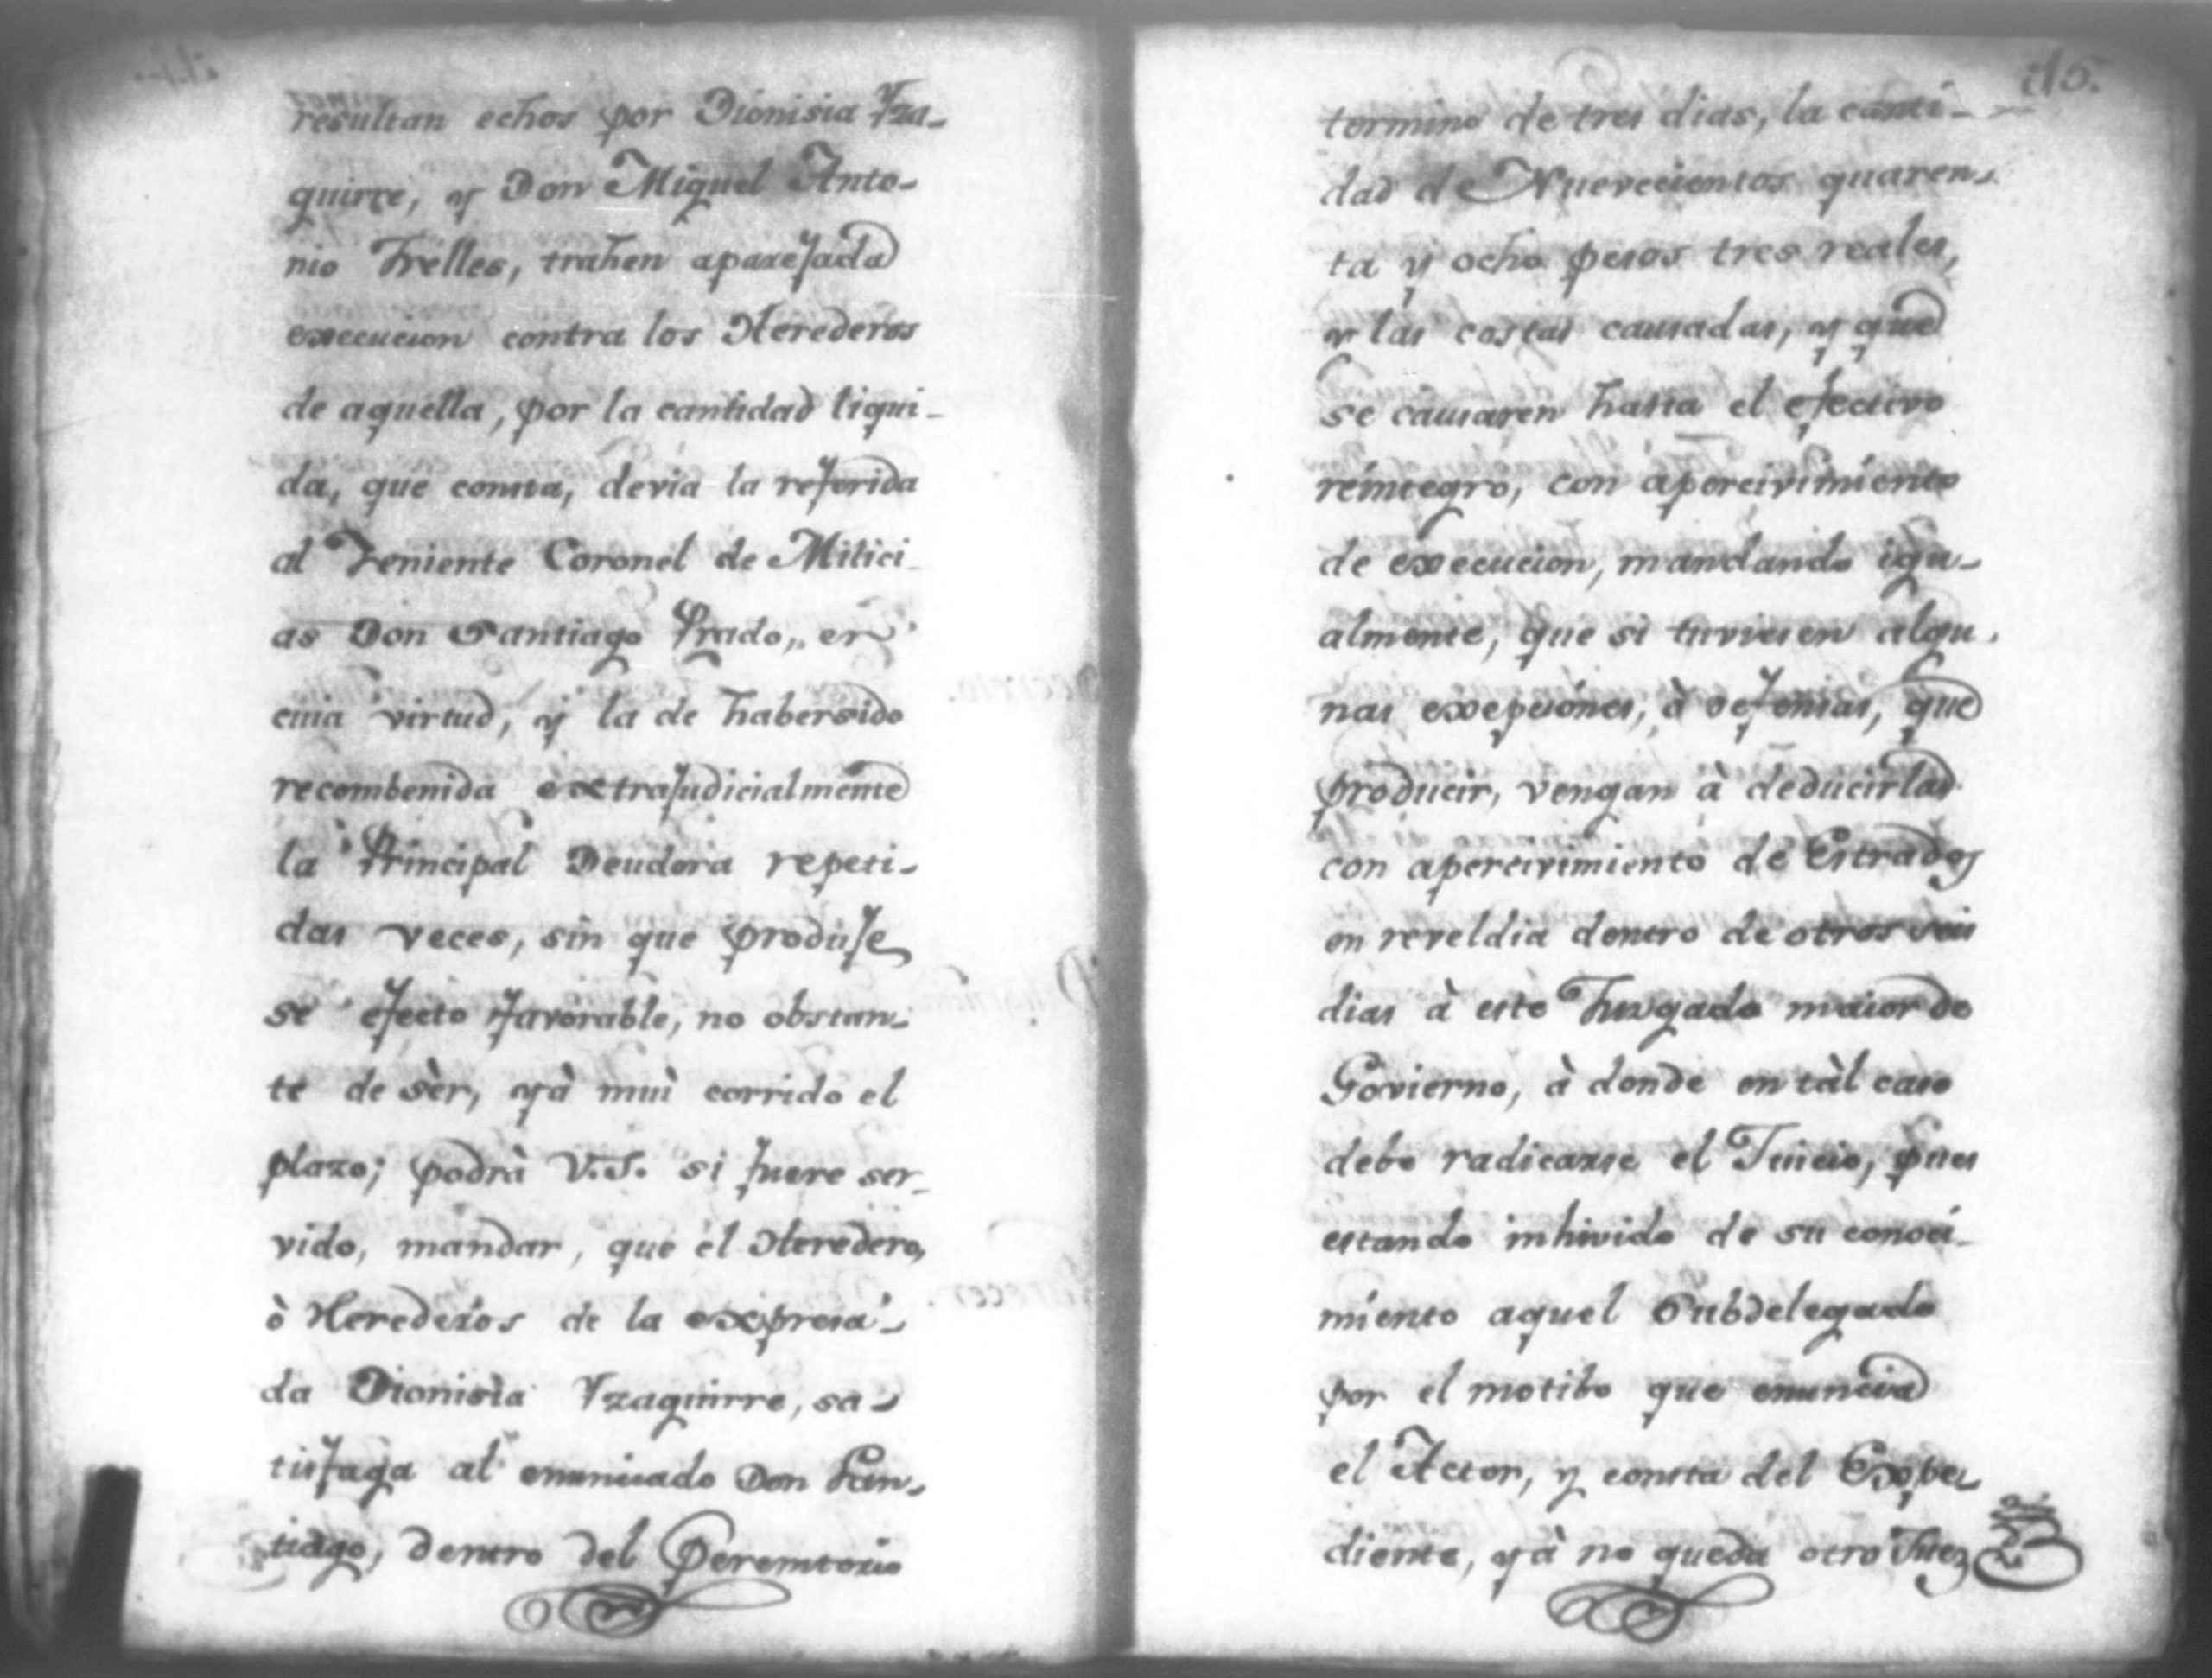 resultan echos por Dionisia Yza-
quirre, y Don Miguel Anto-
nio Frelles, trahen aparejada
execucion contra los Herederos
de aquella, por la cantidad liqui-
da, que consta, devia la referida
al Teniente Coronel de Milici-
as Don Santiago Prado, en
cuia virtud, y la de habersido
recombenida extrajudicialmente
la Principal Deudora repeti-
das veces, sin que produje
se efecto favorable, no obstan-
te de sèr, yà mui corrido el
plazo; podrà V.S. si fuere ser-
vido, mandar, que el Heredero,
ò Herederos de la expresa-
da Dionisia Yzaquirre, sa-
tisfaga al enunciado Don San-
tiago, dentro del Peremtorio
termino de tres dias, la canti-
dad de Nuevecientos quaren-
ta y ocho pesos tres reales,
y las costas causadas, y que
se causaren hasta el efectivo
reintegro, con apercivimiento
de execucion, mandando igu-
almente, que si tuviesen algu-
nas exepciónes, ò defensas, que
producir, vengan à deducirlas
con apercivimiento de Estrados
en reveldia dentro de otros seis
dias à este Juzgado maior de
Govierno, à donde en tàl caso
debe radicarse el Juicio, pues
estando inhivido de su conoci-
miento aquel Subdelegado
por el motibo que enuncia
el Actor, y consta del Expe-
diente, yà no queda otro Juez